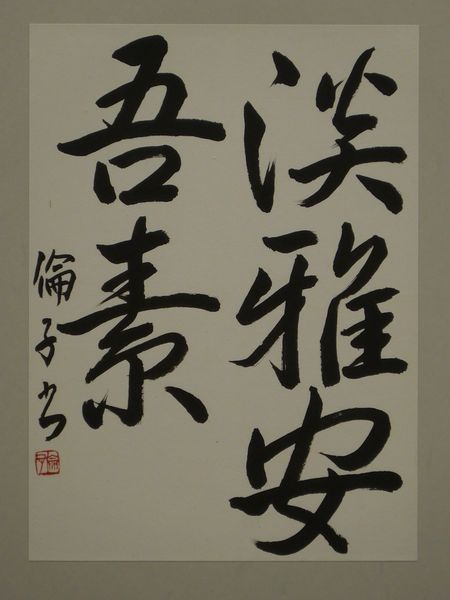 淡雅安
吾素
倫子书